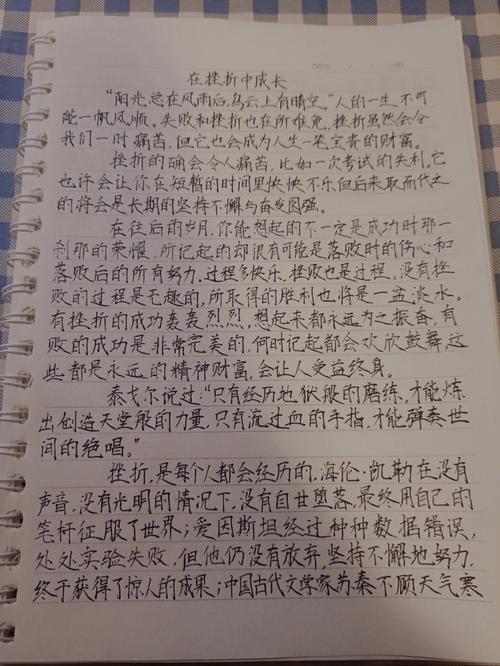 DATE / / NO
在挫折中成长
“阳光总在风雨后,乌云上有晴空。”人的一生,不可
能一帆风顺。失败和挫折也在所难免,挫折虽然会令
我们一时痛苦,但它也会成为人生一笔宝贵的财富。
挫折的确会令人痛苦,比如一次考试的失利,它
也许会让你在短暂的时间里怏怏不乐但后来取而代之
的将会是长期的坚持不懈与奋发图强。
在往后的岁月,你能想起的不一定是成功时那一
刹那的荣耀,所记起的却很有可能是落败时的伤心和
落败后的所有努力,过程多快乐,挫败也是过程,没有挫
败的过程是无趣的,所取得的胜利也将是一盆淡水。
有挫折的成功轰轰烈烈,想起来都永远为之振奋,有
败的成功是非常完美的,何时记起都会欢欣鼓舞这
些都是永远的精神财富,会让人受益终身。
泰戈尔说过:“只有经历地伏般的磨练,才能炼
出创造天堂般的力量,只有流过血的手指,才能弹奏世
间的绝唱。”
挫折,是每个人都会经历的,海伦·凯勒在没有
声音,没有光明的情况下,没有自甘堕落,最终用自己的
笔杆征服了世界;爱因斯坦经过种种数据错误,
处处实验失败,但他仍没有放弃,坚持不懈地努力,
终于获得了惊人的成果;中国古代文学家苏秦不顾天气寒